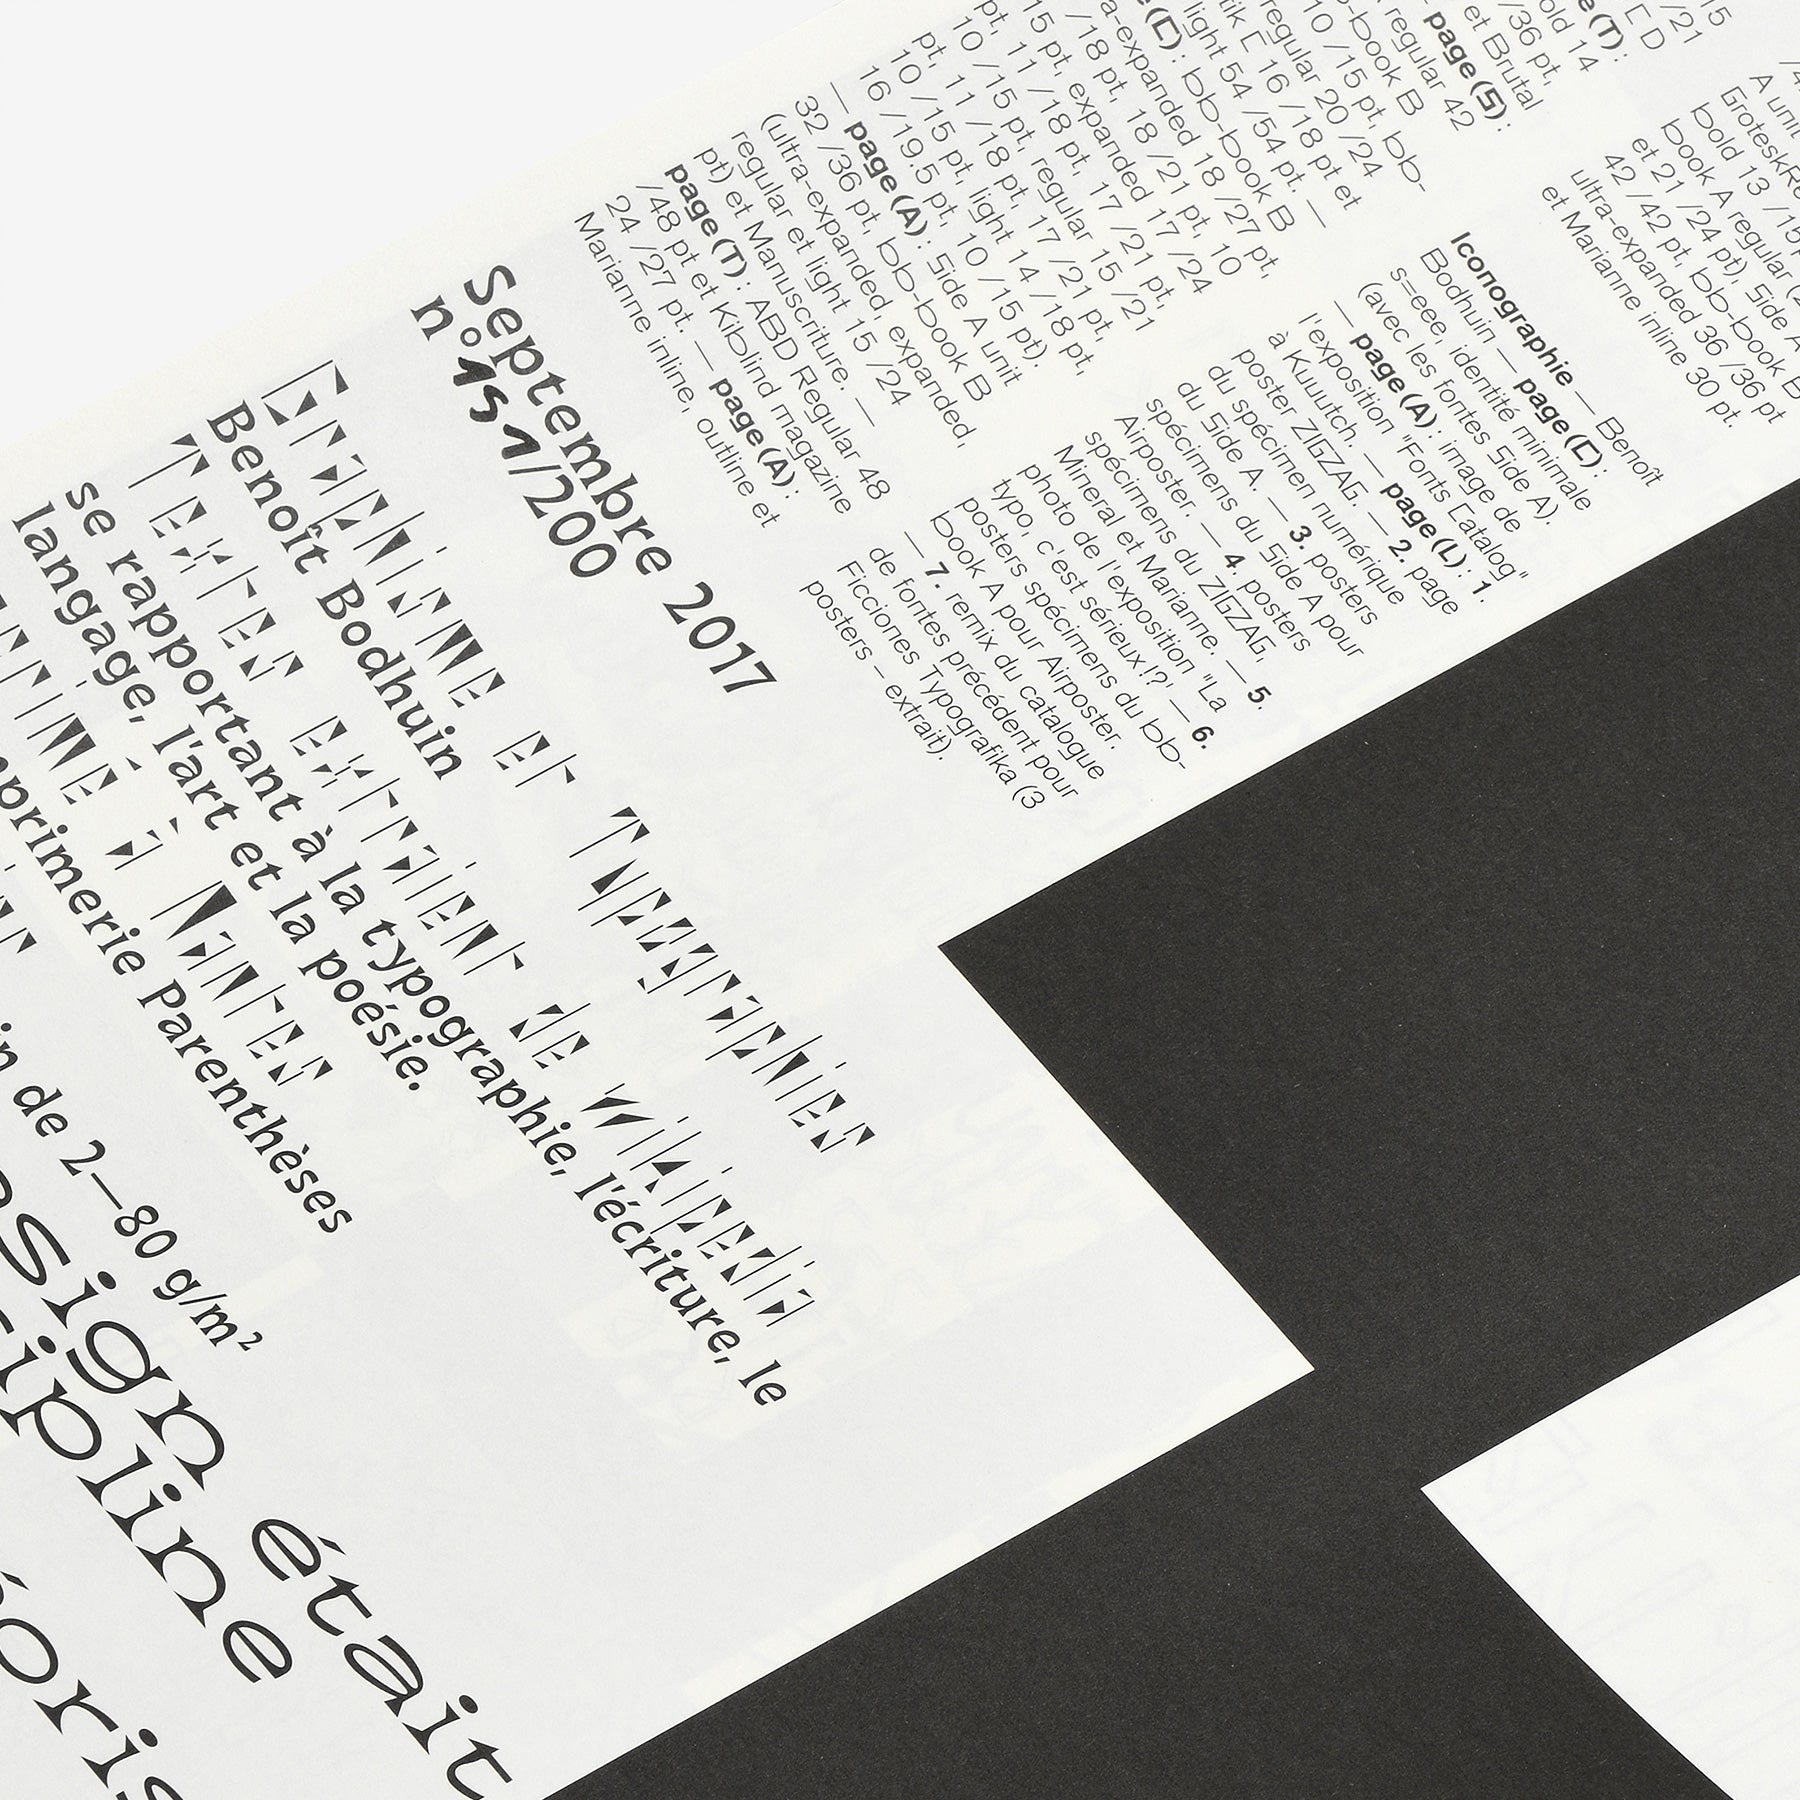 15
/21
C D
e(T):
old 14
/36 pt,
et Brutal
— page(S):
regular 42
-book B
10 /15 pt, bb-
regular 20 /24
tik C 16 /18 pt et
light 54 /54 pt. —
e(C): bb-book B
a-expanded 18 /27 pt,
/18 pt, 18 /21 pt, 10
15 pt, expanded 17 /24
pt, 11 /18 pt, 17 /21 pt,
10 /15 pt, regular 15 /21
pt, 11 /18 pt, 17 /21 pt,
10 /15 pt, light 14 /18 pt,
16 /19.5 pt, 10 /15 pt).
— page(A): Side A unit
32 /36 pt, bb-book B
(ultra-expanded, expanded,
regular et light 15 /24
pt) et Manuscriture. —
page(T): ABD Regular 48
/48 pt et Kiblind magazine
24 /27 pt. — page(A):
Marianne inline, outline et
A unit
GroteskRe
bold 13 /15
book A regular (2
et 21 /24 pt), Side A
42 /42 pt, bb-book B
ultra-expanded 36 /36 pt
et Marianne inline 30 pt.
Iconographie — Benoît
Bodhuin — page(C):
s=eee, identité minimale
(avec les fontes Side A).
— page(A): image de
l'exposition "Fonts Catalog"
à Kuuutch. — page(L): 1.
poster ZIGZAG. — 2. page
du spécimen numérique
du Side A. — 3. posters
spécimens du Side A pour
Airposter. — 4. posters
spécimens du ZIGZAG,
Mineral et Marianne. — 5.
photo de l'exposition "La
typo, c'est sérieux!?" — 6.
posters spécimens du bb-
book A pour Airposter.
— 7. remix du catalogue
de fontes précédent pour
Ficciones Typografika (3
posters – extrait).
Septembre 2017
n°151/200
Graphisme et Typographies
Benoît Bodhuin
Textes extraient de Wikipedia
se rapportant à la typographie, l'écriture, le
langage, l'art et la poésie.
primé à Nantes
primerie Parenthèses
in de 2—80 g/m²
sign était
sipline
oris